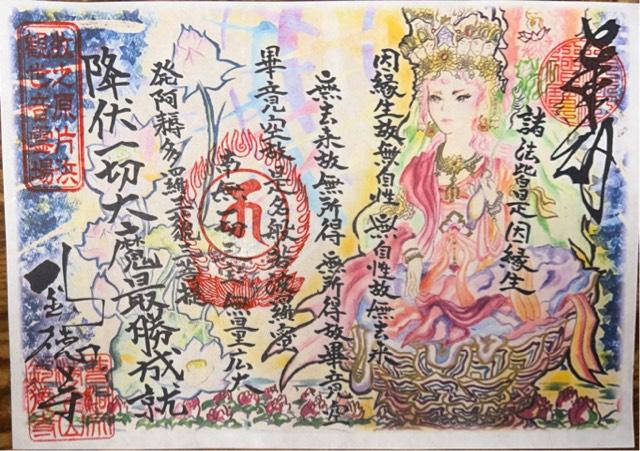 諸法皆是因縁生
因縁生故無自性 無自性故無去来
無去来故無所得 無所得故畢竟空
畢竟空故是名般若波羅蜜
南無一切三宝 無量広大
発阿耨多羅三藐三菩提
降伏一切大魔最勝成就
牧之原片浜
観世音霊場